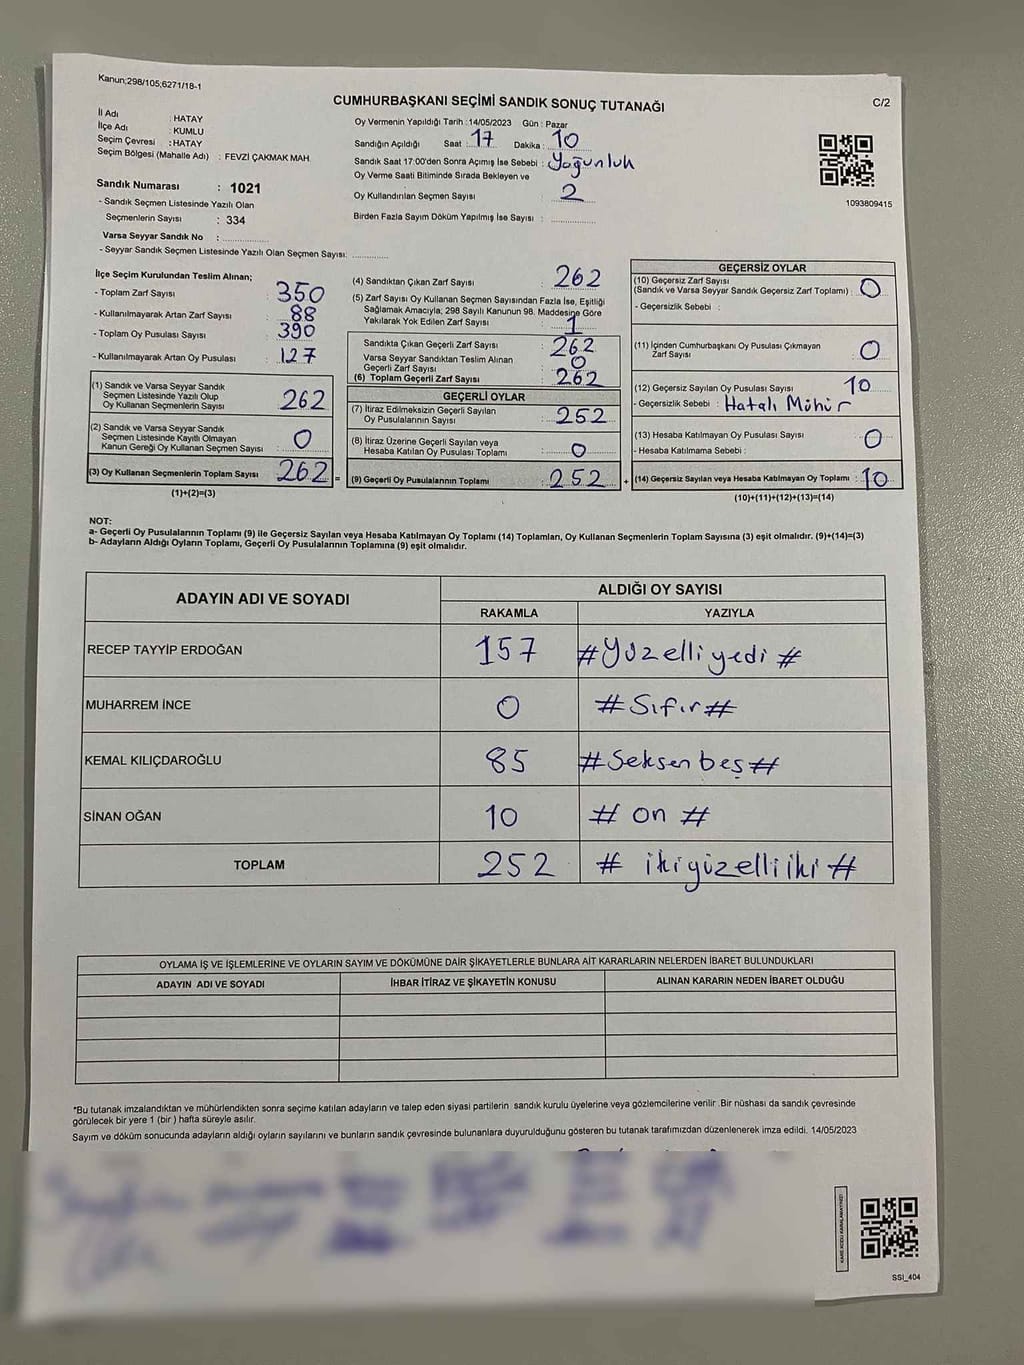 Kanun;298/105;6271/18-1
CUMHURBAŞKANI SEÇİMİ SANDIK SONUÇ TUTANAĞI
C/2
İl Adı : HATAY
İlçe Adı : KUMLU
Seçim Çevresi : HATAY
Seçim Bölgesi (Mahalle Adı) : FEVZİ ÇAKMAK MAH.
Sandık Numarası : 1021
- Sandık Seçmen Listesinde Yazılı Olan
Seçmenlerin Sayısı : 334
Varsa Seyyar Sandık No :
- Seyyar Sandık Seçmen Listesinde Yazılı Olan Seçmen Sayısı:
Oy Vermenin Yapıldığı Tarih :14/05/2023 Gün : Pazar
Sandığın Açıldığı Saat : 17 Dakika : 10
Sandık Saat 17:00'den Sonra Açımış İse Sebebi : Yoğunluk
Oy Verme Saati Bitiminde Sırada Bekleyen ve
Oy Kullandırılan Seçmen Sayısı : 2
Birden Fazla Sayım Döküm Yapılmış İse Sayısı :
1093809415
İlçe Seçim Kurulundan Teslim Alınan;
- Toplam Zarf Sayısı : 350
- Kullanılmayarak Artan Zarf Sayısı : 88
- Toplam Oy Pusulası Sayısı : 390
- Kullanılmayarak Artan Oy Pusulası : 127
(1) Sandık ve Varsa Seyyar Sandık
Seçmen Listesinde Yazılı Olup
Oy Kullanan Seçmenlerin Sayısı : 262
(2) Sandık ve Varsa Seyyar Sandık
Seçmen Listesinde Kayıtlı Olmayan
Kanun Gereği Oy Kullanan Seçmen Sayısı : 0
(3) Oy Kullanan Seçmenlerin Toplam Sayısı : 262 =
(1)+(2)=(3)
(4) Sandıktan Çıkan Zarf Sayısı : 262
(5) Zarf Sayısı Oy Kullanan Seçmen Sayısından Fazla İse, Eşitliği
Sağlamak Amacıyla; 298 Sayılı Kanunun 98. Maddesine Göre
Yakılarak Yok Edilen Zarf Sayısı : 1
Sandıkta Çıkan Geçerli Zarf Sayısı : 262
Varsa Seyyar Sandıktan Teslim Alınan
Geçerli Zarf Sayısı : 0
(6) Toplam Geçerli Zarf Sayısı : 262
GEÇERLİ OYLAR
(7) İtiraz Edilmeksizin Geçerli Sayılan
Oy Pusulalarının Sayısı : 252
(8) İtiraz Üzerine Geçerli Sayılan veya
Hesaba Katılan Oy Pusulası Toplamı : 0
(9) Geçerli Oy Pusulalarının Toplamı : 252 +
GEÇERSİZ OYLAR
(10) Geçersiz Zarf Sayısı
(Sandık ve Varsa Seyyar Sandık Geçersiz Zarf Toplamı) : 0
- Geçersizlik Sebebi :
(11) İçinden Cumhurbaşkanı Oy Pusulası Çıkmayan
Zarf Sayısı : 0
(12) Geçersiz Sayılan Oy Pusulası Sayısı : 10
- Geçersizlik Sebebi : Hatalı Mühür
(13) Hesaba Katılmayan Oy Pusulası Sayısı : 0
- Hesaba Katılmama Sebebi :
(14) Geçersiz Sayılan veya Hesaba Katılmayan Oy Toplamı : 10
(10)+(11)+(12)+(13)=(14)
NOT:
a- Geçerli Oy Pusulalarının Toplamı (9) ile Geçersiz Sayılan veya Hesaba Katılmayan Oy Toplamı (14) Toplamları, Oy Kullanan Seçmenlerin Toplam Sayısına (3) eşit olmalıdır. (9)+(14)=(3)
b- Adayların Aldığı Oyların Toplamı, Geçerli Oy Pusulalarının Toplamına (9) eşit olmalıdır.
ADAYIN ADI VE SOYADI
ALDIĞI OY SAYISI
RAKAMLA YAZIYLA
RECEP TAYYİP ERDOĞAN 157 #Yüzelliyedi#
MUHARREM İNCE 0 #Sıfır#
KEMAL KILIÇDAROĞLU 85 #Seksenbeş#
SİNAN OĞAN 10 #on#
TOPLAM 252 #ikiyüzelliiki#
OYLAMA İŞ VE İŞLEMLERİNE VE OYLARIN SAYIM VE DÖKÜMÜNE DAİR ŞİKAYETLERLE BUNLARA AİT KARARLARIN NELERDEN İBARET BULUNDUKLARI
ADAYIN ADI VE SOYADI İHBAR İTİRAZ VE ŞİKAYETİN KONUSU ALINAN KARARIN NEDEN İBARET OLDUĞU
*Bu tutanak imzalandıktan ve mühürlendikten sonra seçime katılan adayların ve talep eden siyasi partilerin sandık kurulu üyelerine veya gözlemcilerine verilir .Bir nüshası da sandık çevresinde
görülecek bir yere 1 (bir ) hafta süreyle asılır.
Sayım ve döküm sonucunda adayların aldığı oyların sayılarını ve bunların sandık çevresinde bulunanlara duyurulduğunu gösteren bu tutanak tarafımızdan düzenlenerek imza edildi. 14/05/2023
SSI_404